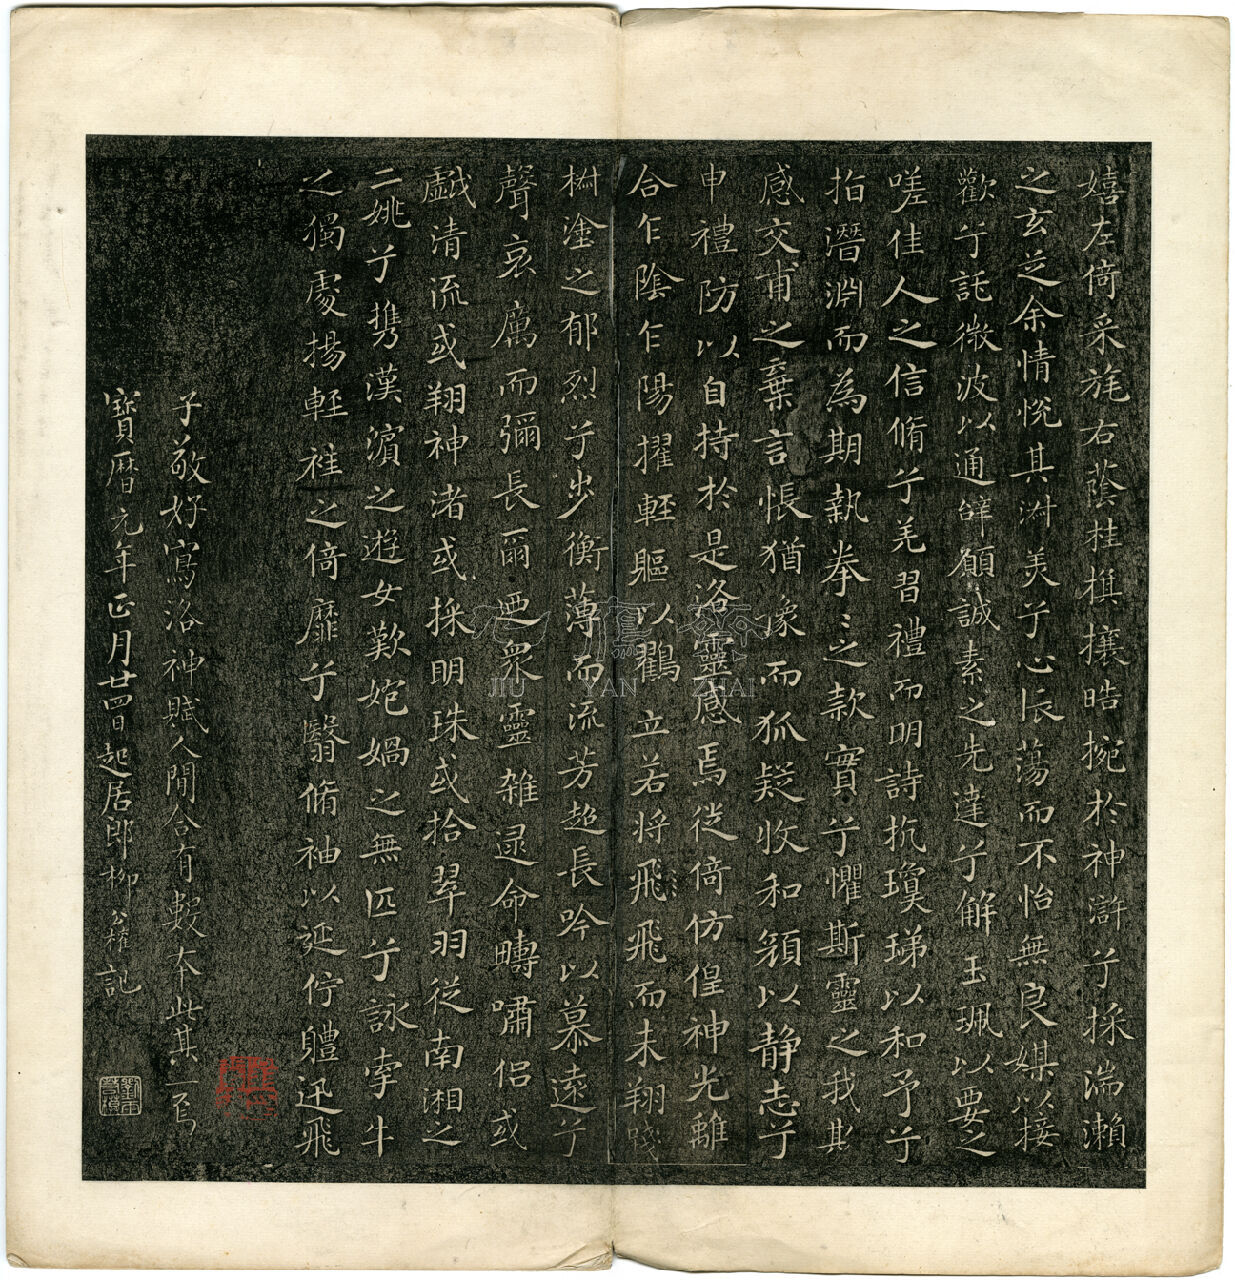 嬉左倚采旄右蔭桂旗攘皓捥於神滸兮採湍瀨
之玄芝余情悅其淑美兮心振蕩而不怡無良媒以接
歡兮託微波以通辭願誠素之先達兮解玉珮以要之
嗟佳人之信脩兮羌習禮而明詩抗瓊珶以和予兮
指潛淵而為期執拳〻之款實兮懼斯靈之我欺
感交甫之棄言悵猶豫而狐疑收和顏以静志兮
申禮防以自持於是洛靈感焉徙倚仿偟神光離
合乍陰乍陽擢輕軀以鸖立若将飛飛而未翔踐
椒塗之郁烈兮步衡薄而流芳超長吟以慕遠兮
聲哀厲而彌長爾迺衆靈雜遝命疇嘯侣或
戲清流或翔神渚或採明珠或拾翠羽從南湘之
二姚兮携漢濱之遊女歎㛊媧之無匹兮詠牽牛
之獨處揚輕袿之倚靡兮翳脩袖以延佇軆迅飛
子敬好寫洛神賦人間合有數本此其一焉
寶曆元年正月廿四日起居郎柳公權記
JIU YAN ZHAI